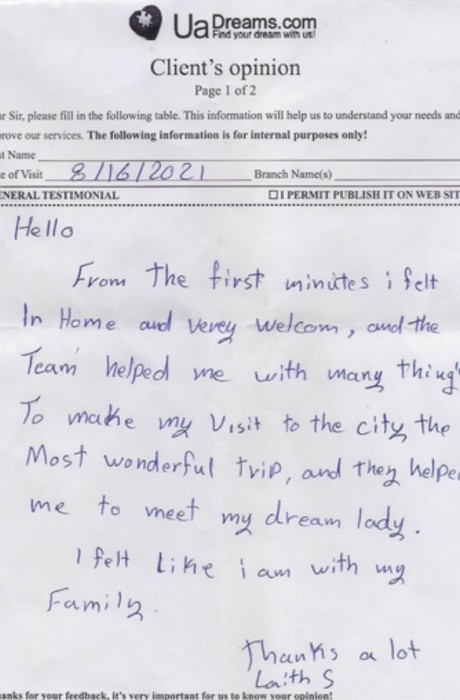 UaDreams.com
Find your dream with us!
Client's opinion
Page 1 of 2
r Sir, please fill in the following table. This information will help us to understand your needs and
rove our services. The following information is for internal purposes only!
t Name
e of Visit 8/16/2021 Branch Name(s)
ENERAL TESTIMONIAL ☐ I PERMIT PUBLISH IT ON WEB SIT
Hello
From the first minutes i felt
In Home and verey welcom, and the
Team helped me with many thing's
To make my Visit to the city the
Most wonderful trip, and they helpe
me to meet my dream lady.
I felt Like i am with my
Family.
Thanks a lot
Laith S
anks for your feedback, it's very important for us to know your opinion!